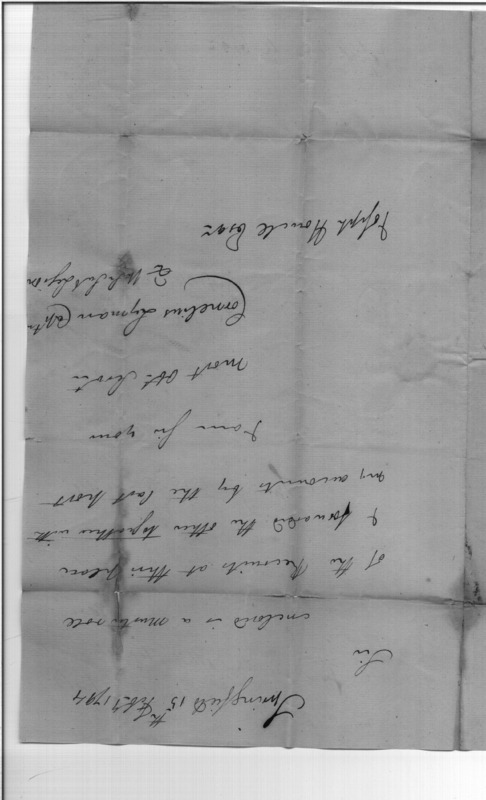 Springfield 15th Feby 1794
Sir
enclosd is a muster role
of the Recruits at this place
I forwarded the other together with
my accounts by the last post
I am Sir your
most obt. Servt.
Cornelius Lyman Captn
2 U. S. Sub Legion
Joseph Howell Esqr